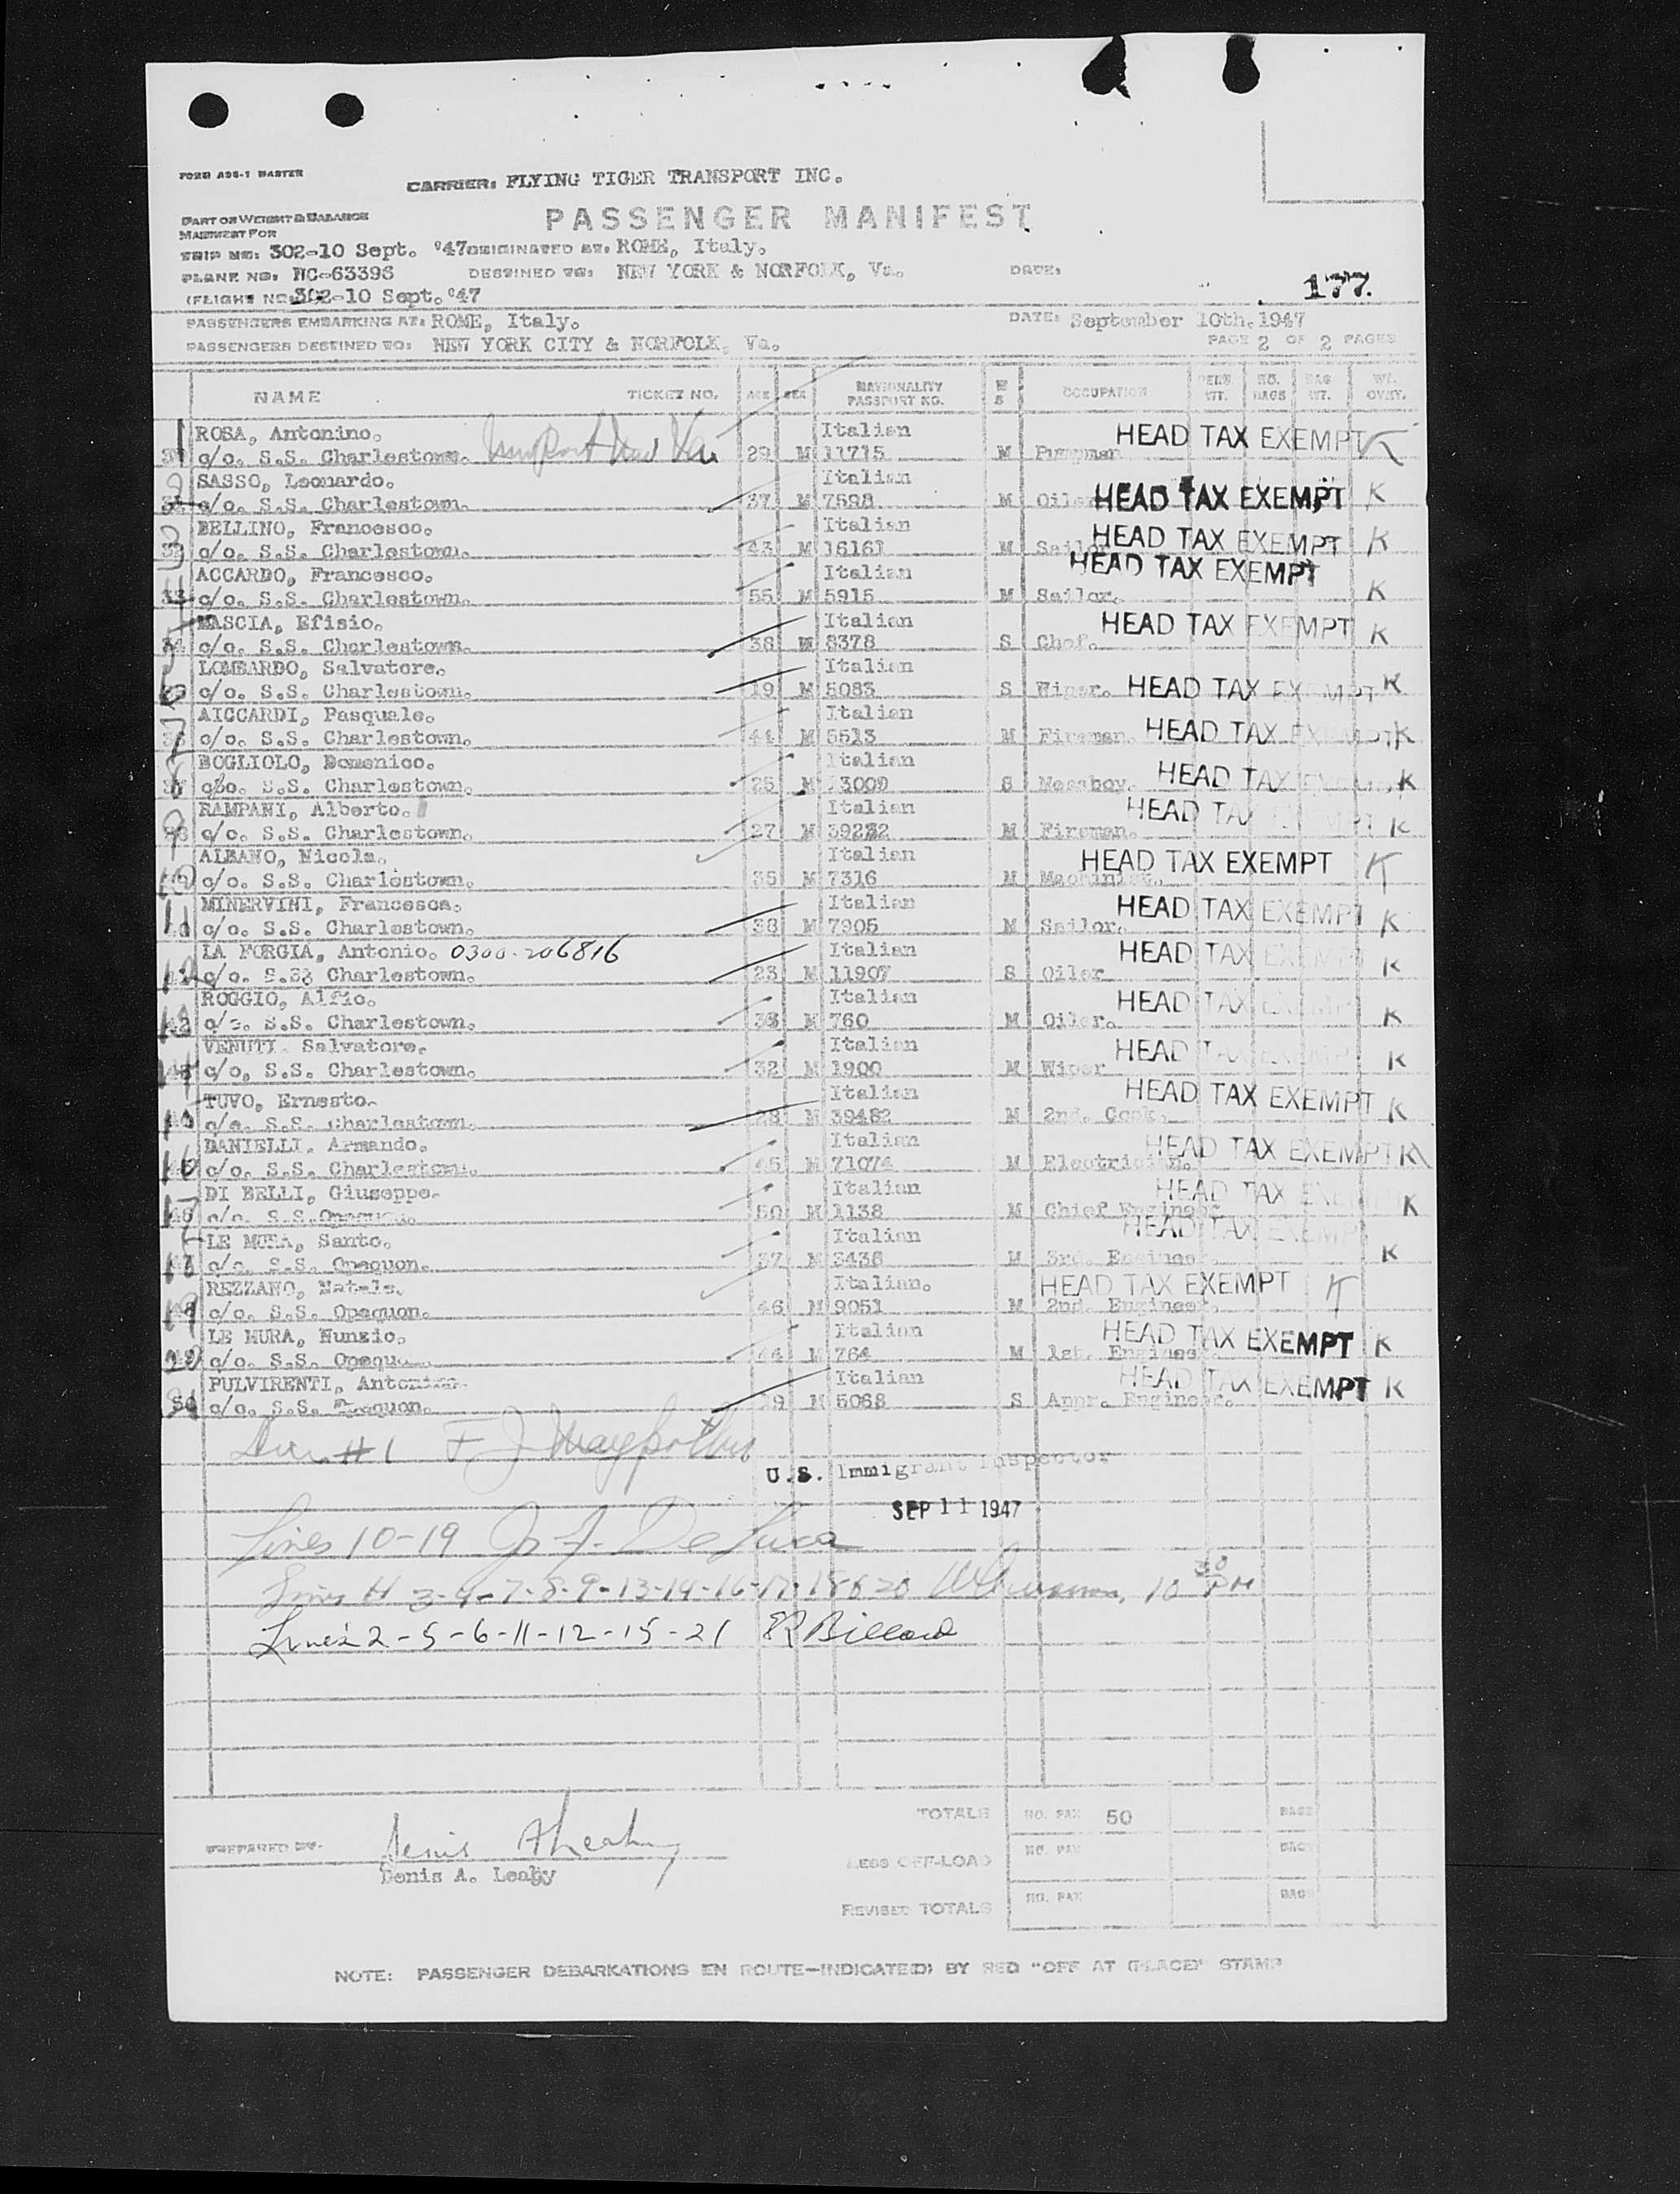 FORM ASS-1 MASTER
CARRIER: FLYING TIGER TRANSPORT INC.
PART OF WEIGHT & BALANCE
MANIFEST FOR
PASSENGER MANIFEST
TRIP NO: 302-10 Sept. '47 ORIGINATED AT: ROME, Italy.
PLANE NO: NC-63396 DESTINED TO: NEW YORK & NORFOLK, Va. DATE:
177.
(FLIGHT NO: 302-10 Sept. '47
PASSENGERS EMBARKING AT: ROME, Italy. DATE: September 10th. 1947
PASSENGERS DESTINED TO: NEW YORK CITY & NORFOLK, Va. PAGE 2 OF 2 PAGES
NAME TICKET NO. AGE SEX NATIONALITY PASSPORT NO. M S OCCUPATION NO. BAGS BAG WT. WT. OVRY.
1 ROSA, Antonino. Italian HEAD TAX EXEMPT K
c/o. S.S. Charlestown. 29 M 11715 M Pumpman
2 SASSO, Leonardo. Italian
c/o. S.S. Charlestown. 37 M 7598 M Oiler HEAD TAX EXEMPT K
3 BELLINO, Francesco. Italian HEAD TAX EXEMPT K
c/o. S.S. Charlestown. 43 M 16161 M Sailor
4 ACCARDO, Francesco. Italian HEAD TAX EXEMPT
c/o. S.S. Charlestown. 55 M 5915 M Sailor. K
5 MASCIA, Efisio. Italian HEAD TAX EXEMPT K
34 c/o. S.S. Charlestown. 36 M 8378 S Chef.
LOMBARDO, Salvatore. Italian
6 c/o. S.S. Charlestown. 19 M 5083 S Wiper. HEAD TAX EXEMPT K
7 AICCARDI, Pasquale. Italian
c/o. S.S. Charlestown. 44 M 5513 M Fireman. HEAD TAX EXEMPT K
8 BOGLIOLO, Domenico. Italian
c/o. S.S. Charlestown. 25 M 13009 S Messboy. HEAD TAX EXEMPT K
9 RAMPANI, Alberto. Italian HEAD TAX EXEMPT K
c/o. S.S. Charlestown. 27 M 39282 M Fireman.
ALBANO, Nicola. Italian HEAD TAX EXEMPT K
10 c/o. S.S. Charlestown. 35 M 7316 M Machinist.
MINERVINI, Francesca. Italian HEAD TAX EXEMPT K
11 c/o. S.S. Charlestown. 38 M 7905 M Sailor.
LA FORGIA, Antonio. 0300-206816 Italian HEAD TAX EXEMPT K
12 c/o. S.S. Charlestown. 23 M 11907 S Oiler
ROGGIO, Alfio. Italian HEAD TAX EXEMPT K
13 c/o. S.S. Charlestown. 38 M 760 M Oiler.
VENUTI Salvatore. Italian HEAD TAX EXEMPT K
14 c/o. S.S. Charlestown. 32 M 1900 M Wiper
TUVO, Ernesto. Italian HEAD TAX EXEMPT K
15 c/o. S.S. Charlestown. 28 M 39482 M 2nd. Cook.
DANIELLI, Armando. Italian HEAD TAX EXEMPT K
16 c/o. S.S. Charlestown. 45 M 71074 M Electrician.
DI BELLI, Giuseppe. Italian HEAD TAX EXEMPT K
17 c/o. S.S. Opequon. 50 M 1138 M Chief Engineer
LE MURA, Santo. Italian HEAD TAX EXEMPT K
18 c/o. S.S. Opequon. 37 M 3436 M 3rd. Engineer.
REZZANO, Natale. Italian. HEAD TAX EXEMPT K
19 c/o. S.S. Opequon. 46 M 9051 M 2nd. Engineer.
LE MURA, Nunzio. Italian HEAD TAX EXEMPT K
20 c/o. S.S. Opequon. 44 M 764 M 1st. Engineer.
PULVIRENTI, Antonino. Italian HEAD TAX EXEMPT K
c/o. S.S. Opequon. 19 M 5068 S Appr. Engineer.
#1 F J
U.S. Immigrant Inspector
SEP 11 1947
Lines 10-19 De Luca
Lines # 3-4-7-8-9-13-14-16-17-18 & 20 10 30 PM
Lines 2-5-6-11-12-15-21
TOTALS NO. PAX 50 BAGS
PREPARED BY. Denis A Leahy
Denis A. Leahy
LESS OFF-LOAD NO. PAX BAGS
REVISED TOTALS NO. PAX BAGS
NOTE: PASSENGER DEBARKATIONS EN ROUTE-INDICATE(D) BY RED "OFF AT (PLACE)" STAMP